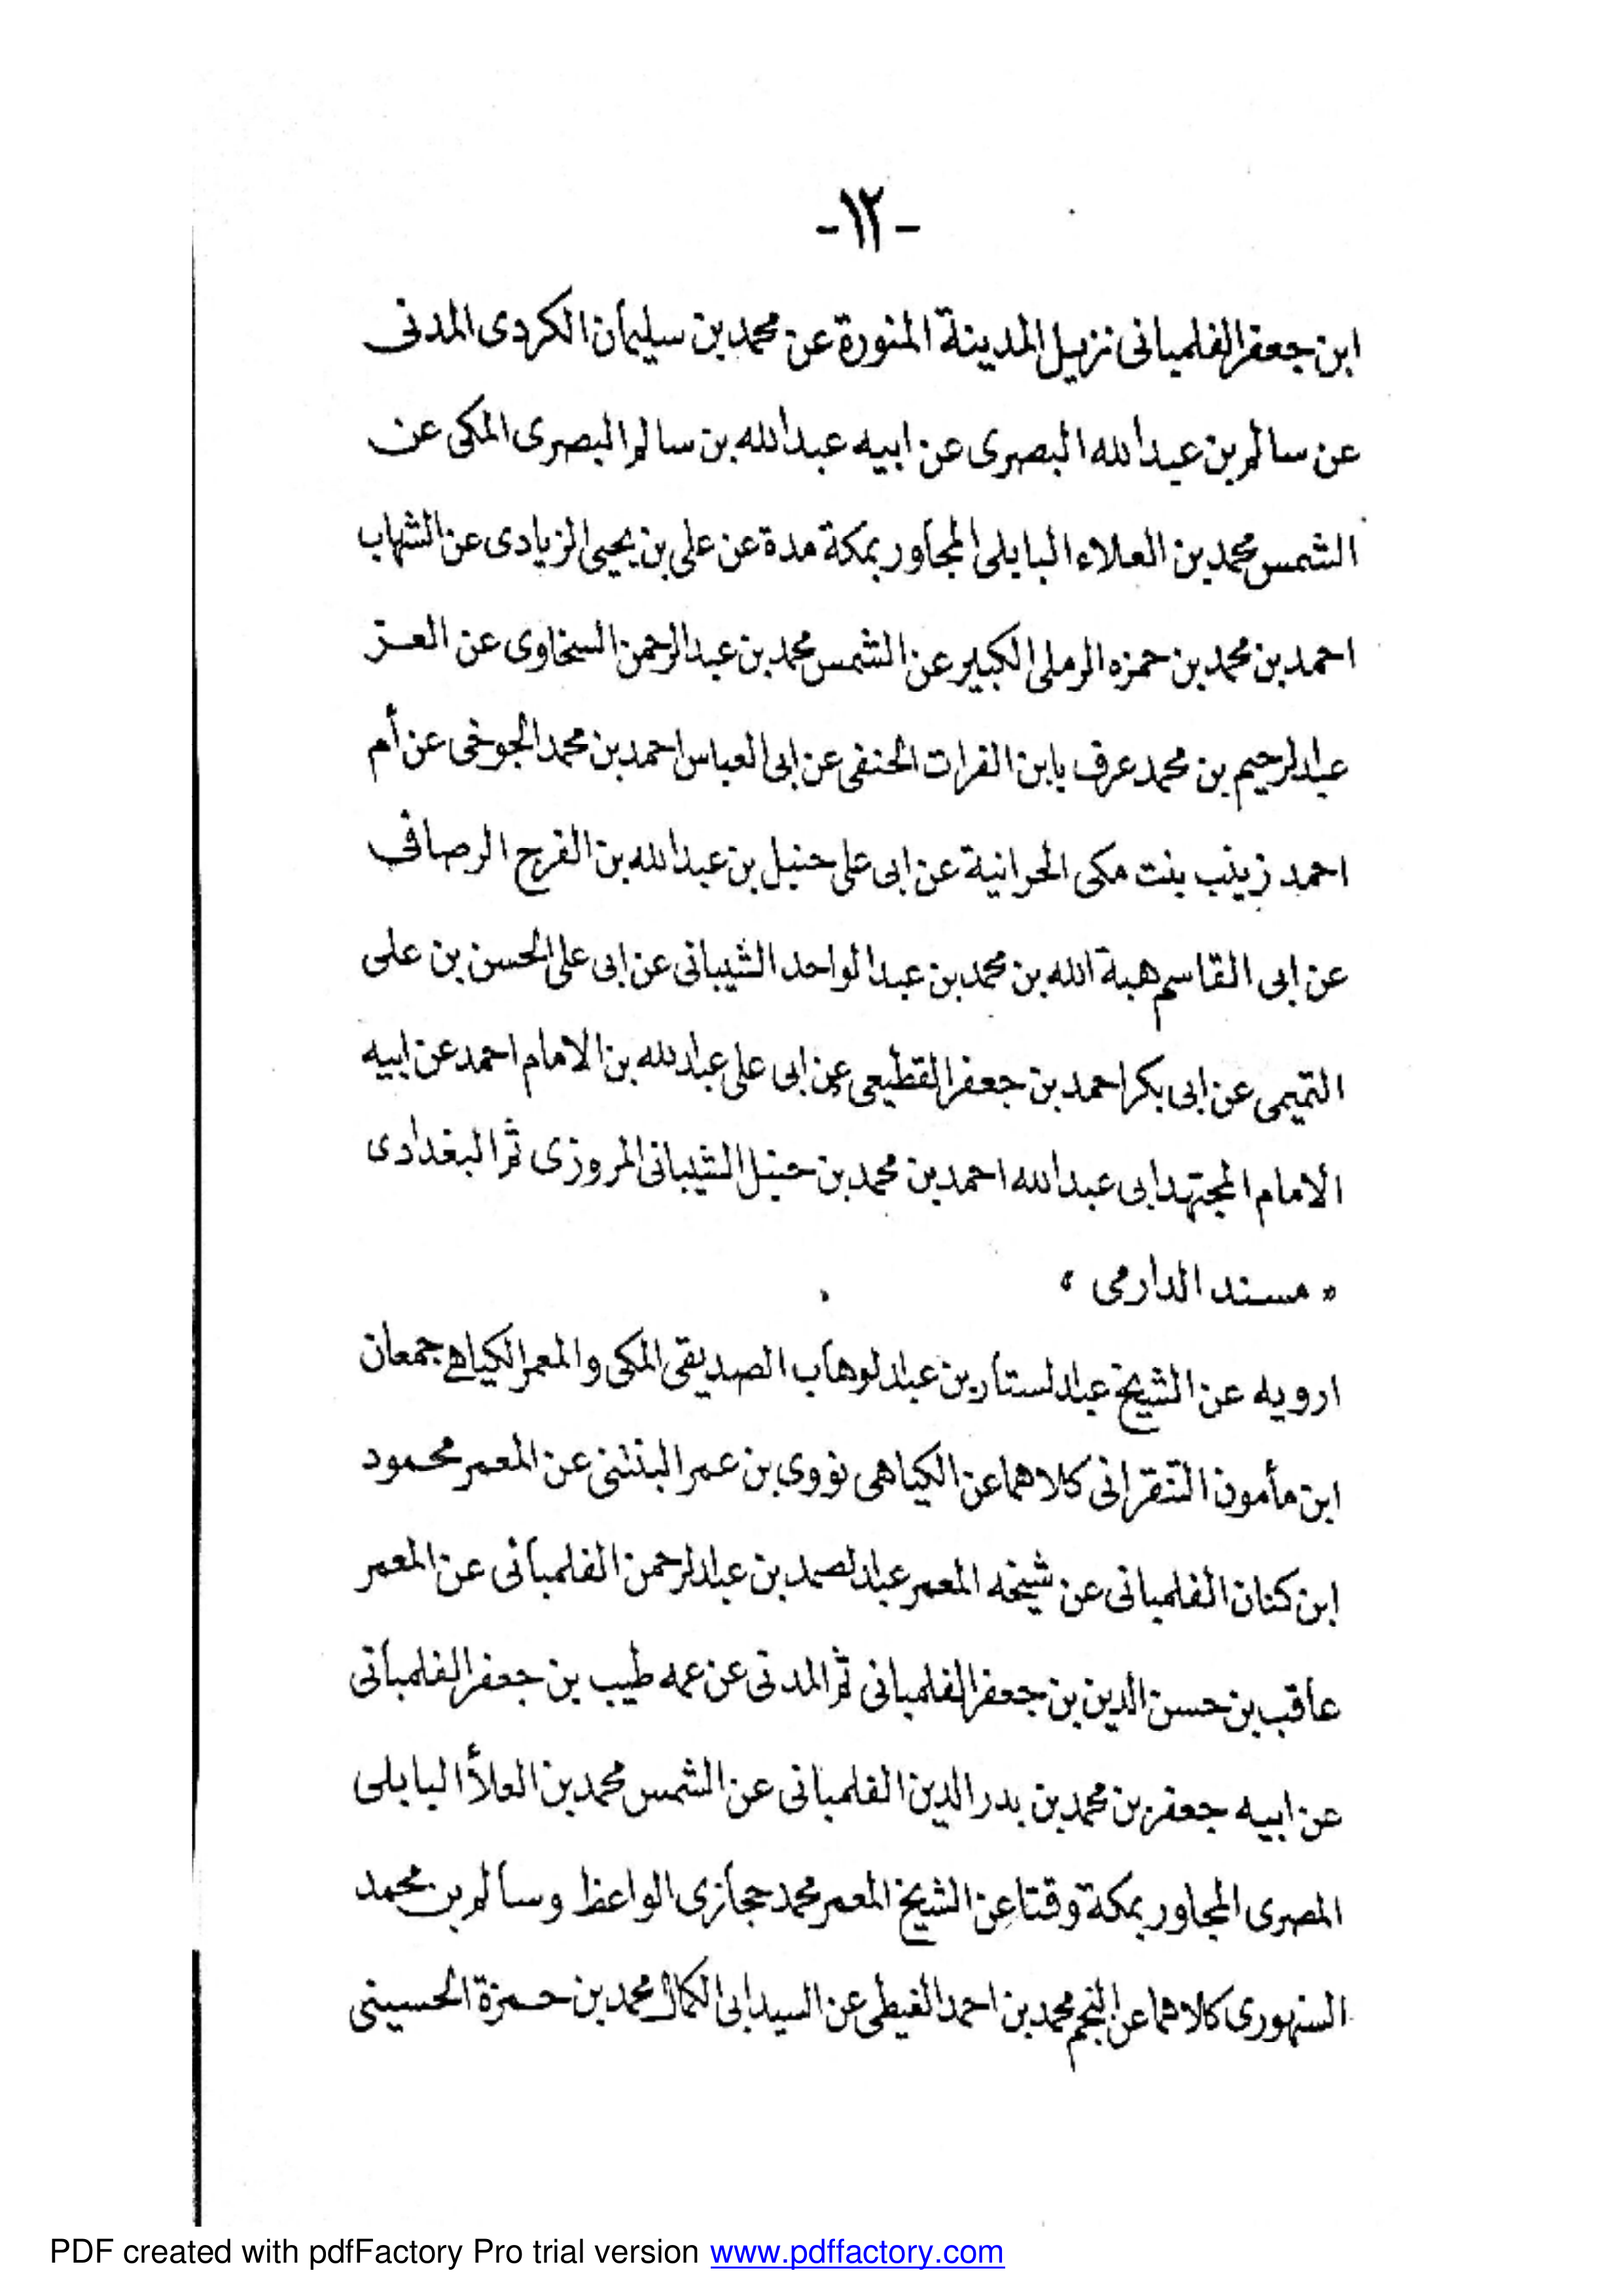 -١٢-
ابن جعفر الفلمبانى نزيل المدينة المنورة عن محمد بن سليمان الكردى المدنى
عن سالم بن عبدالله البصرى عن ابيه عبدالله بن سالم البصرى المكى عن
الشمس محمد بن العلاء البابلى المجاور بمكة مدة عن على بن يحيى الزيادى عن الشهاب
احمد بن محمد بن حمزه الرملى الكبير عن الشمس محمد بن عبدالرحمن السخاوى عن العز
عبدالرحيم بن محمد عرف بابن الفرات الحنفى عن ابى العباس احمد بن محمد الجوخى عن أم
احمد زينب بنت مكى الحرانية عن ابى على حنبل بن عبدالله بن الفرج الرصافى
عن ابى القاسم هبة الله بن محمد بن عبدالواحد الشيبانى عن ابى على الحسن بن على
التميمى عن ابى بكر احمد بن جعفر القطيعى عن ابى على عبدالله بن الامام احمد عن ابيه
الامام المجتهد ابى عبدالله احمد بن محمد بن حنبل الشيبانى المروزى ثم البغدادى
« مسند الدارمى »
ارويه عن الشيخ عبدالستار بن عبدالوهاب الصديقى المكى والمعمر الكياهى جمعان
ابن مأمون التنقرانى كلاهما عن الكياهى نووى بن عمر البنتنى عن المعمر محمود
ابن كنان الفلمبانى عن شيخه المعمر عبدالصمد بن عبدالرحمن الفلمبانى عن المعمر
عاقب بن حسن الدين بن جعفر الفلمبانى ثم المدنى عن عمه طيب بن جعفر الفلمبانى
عن ابيه جعفر بن محمد بن بدر الدين الفلمبانى عن الشمس محمد بن العلأ البابلى
المصرى المجاور بمكة وقتا عن الشيخ المعمر محمد حجازى الواعظ وسالم بن محمد
السنهورى كلاهما عن النجم محمد بن احمد الغيطى عن السيد ابى الكمال محمد بن حمزة الحسينى
PDF created with pdfFactory Pro trial version www.pdffactory.com